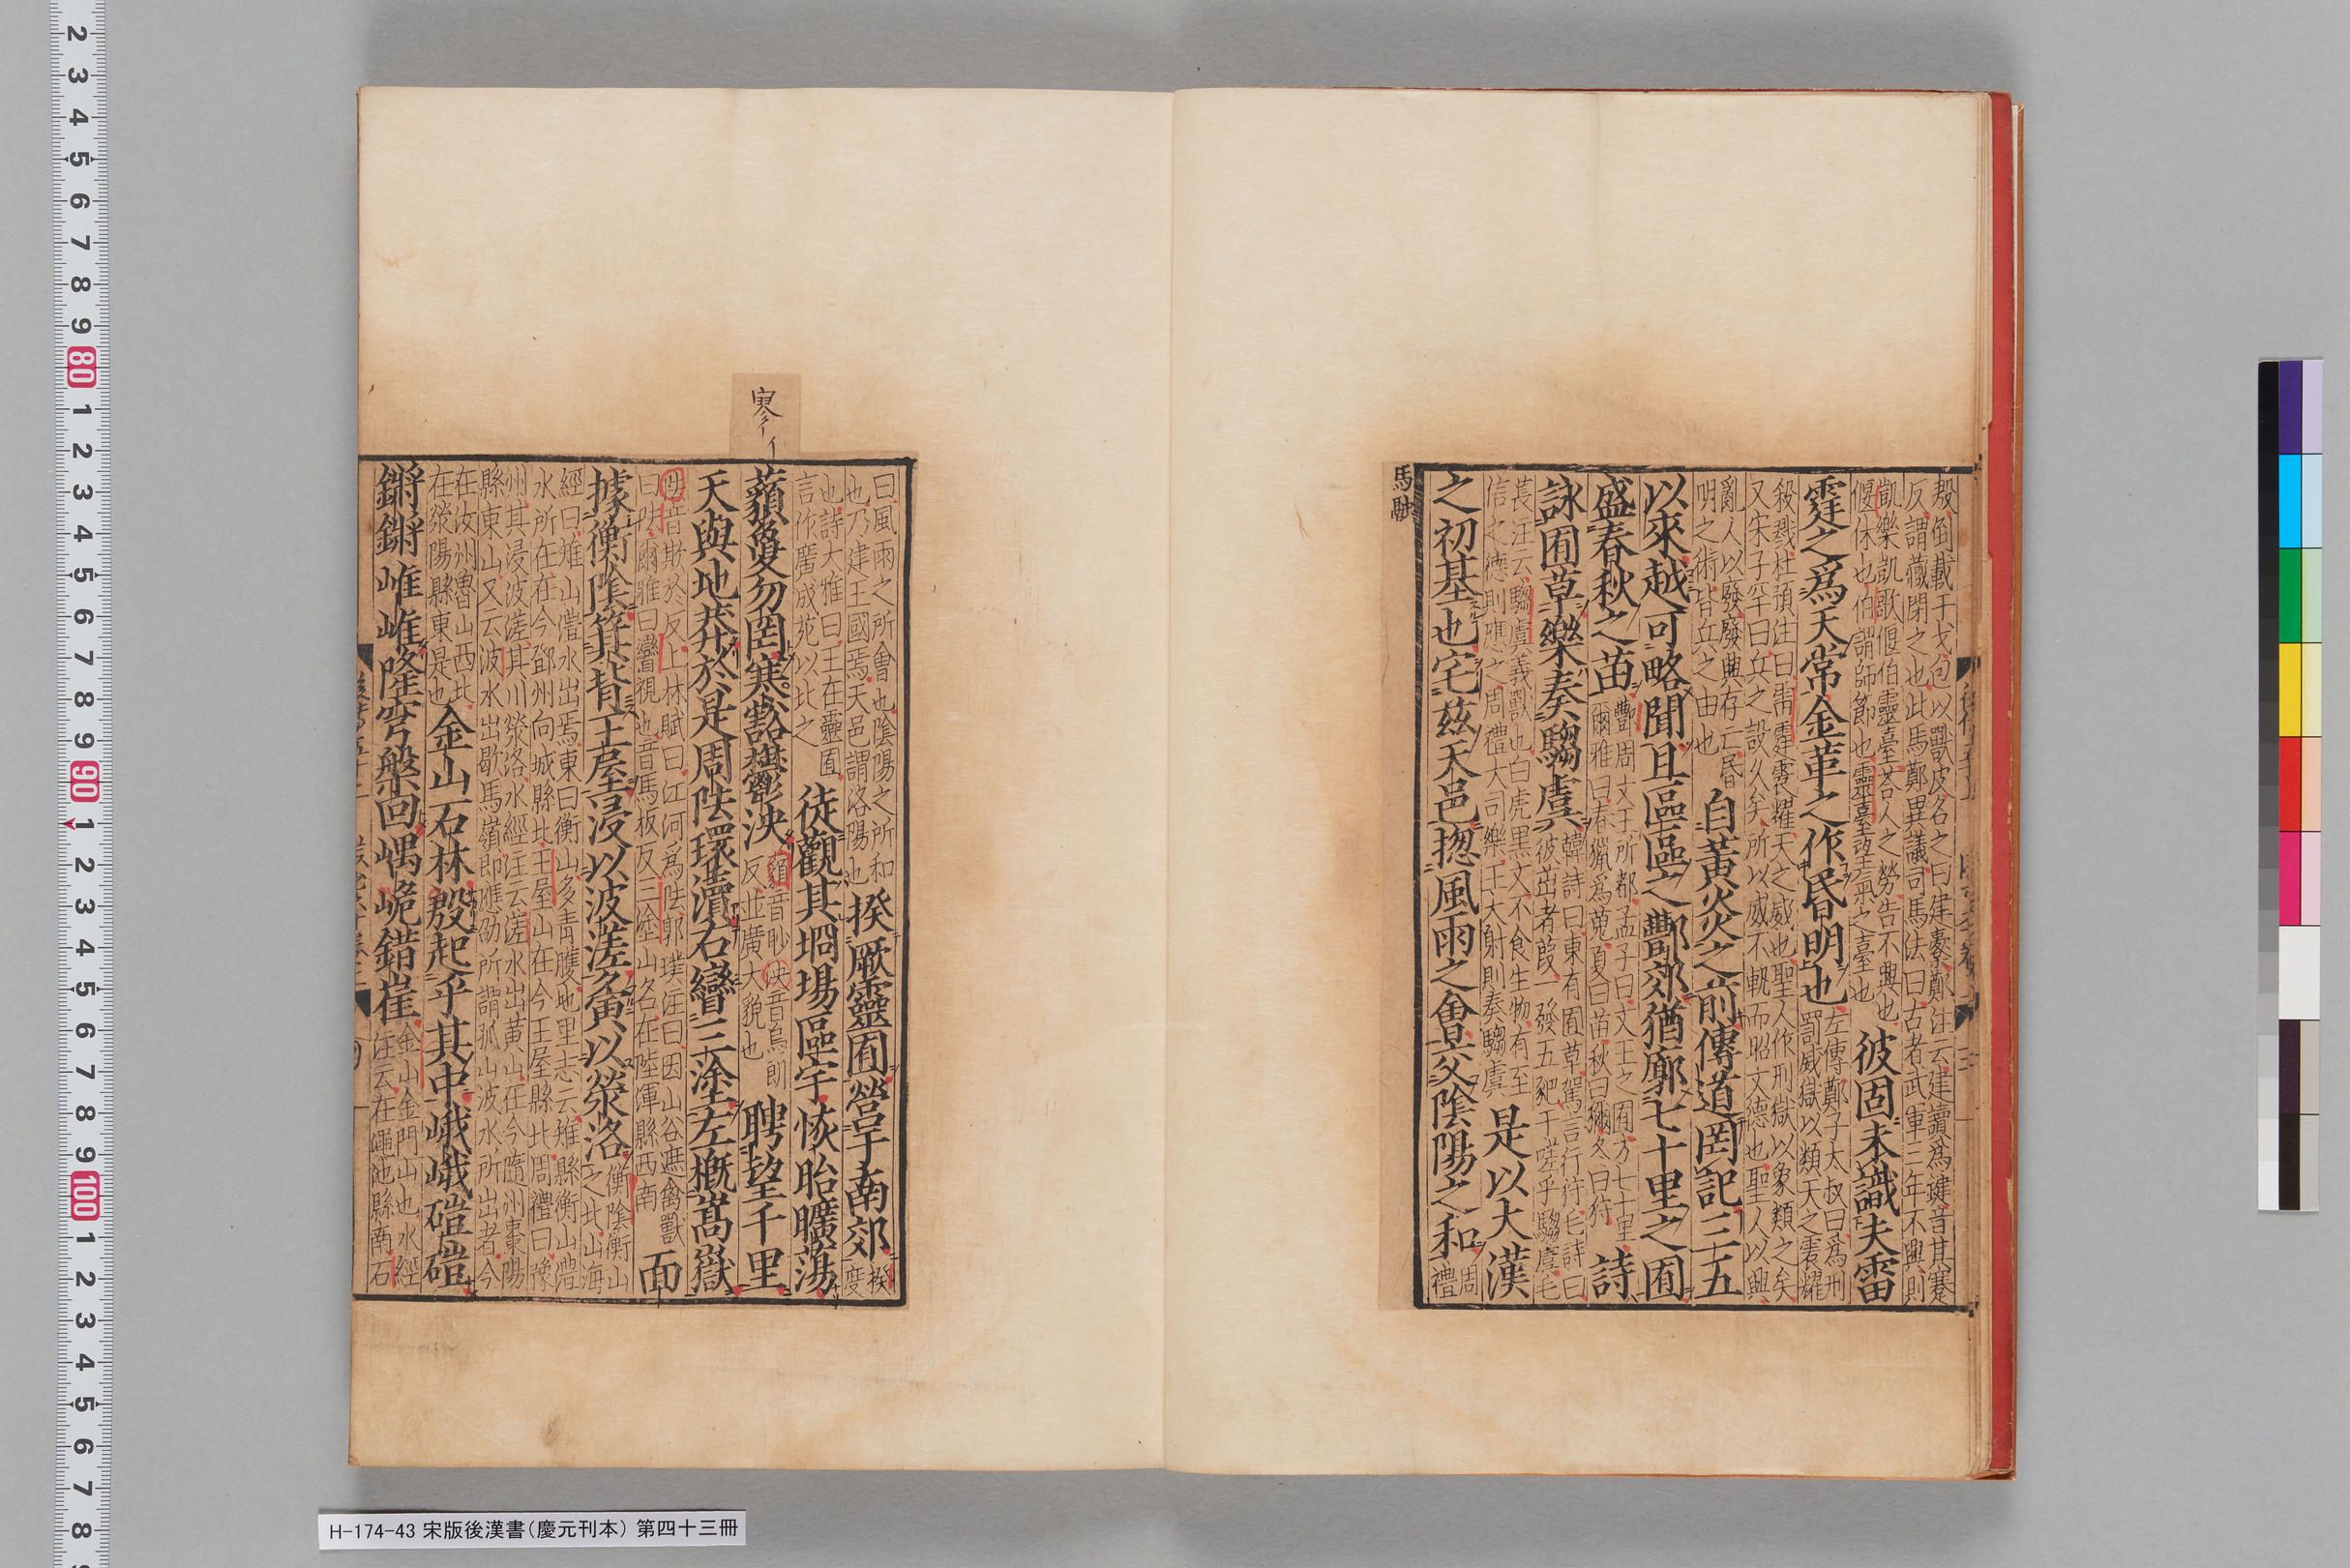 轂倒載干戈包以獸皮名之曰建櫜鄭注云建讀爲鍵音其蹇
反謂藏閉之也此馬鄭異議司馬法曰古者武軍三年不興則
凱樂凱歌偃伯靈臺荅人之勞告不興也
偃休也伯謂師節也靈臺望氣之臺也
彼固未識夫雷
霆之爲天常金革之作昏明也
左傳鄭子太叔曰爲刑
罰威獄以類天之震耀
殺戮杜預注曰雷霆震耀天之威也聖人作刑獄以象類之矣
又宋子罕曰兵之設久矣所以威不軌而昭文德也聖人以興
亂人以廢廢興存亡昏
明之術皆兵之由也
自黃炎之前傳道罔記三五
以來越可略聞且區區之酆郊猶廓七十里之囿
盛春秋之苗
酆周文王所都孟子曰文王之囿方七十里
爾雅曰春獵爲蒐夏曰苗秋曰獮冬曰狩
詩
詠囿草樂奏騶虞
韓詩曰東有囿草駕言行狩毛詩曰
彼茁者葭一發五豝于嗟乎騶虞毛
萇注云騶虞義獸也白虎黑文不食生物有至
信之德則應之周禮大司樂王大射則奏騶虞
是以大漢
之初基也宅茲天邑揔風雨之會交陰陽之和
周
禮
馬融
曰風雨之所會也陰陽之所和
也乃建王國焉天邑謂洛陽也
揆厥靈囿營于南郊
揆
度
也詩大雅曰王在靈囿
言作廣成苑以比之
徒觀其坰場區宇恢胎曠蕩
藐敻勿罔寥豁鬱泱
藐音眇泱音烏朗
反並廣大貌也
騁望千里
天與地莽於是周阹環瀆右矕三塗左概嵩嶽
阹音欺於反上林賦曰江河爲阹郭璞注曰因山谷遮禽獸
曰阹爾雅曰矕視也音馬板反三塗山名在陸渾縣西南
面
據衡陰箕背王屋浸以波溠夤以滎洛
衡陰衡山
之北山海
經曰雉山澧水出焉東曰衡山多青雘地里志云雉縣衡山澧
水所在在今鄧州向城縣北王屋山在今王屋縣北周禮曰豫
州其浸波溠其川滎洛水經注云溠水出黃山在今隨州棗陽
縣東山又云波水出歇馬嶺即應劭所謂孤山波水所出者今
在汝州魯山西北
在滎陽縣東是也
金山石林殷起乎其中峨峨磑磑
鏘鏘崔崔隆穹槃回嵎峗錯崔
金山金門山也水經
注云在澠池縣南石
寥イ
H-174-43 宋版後漢書(慶元刊本) 第四十三冊